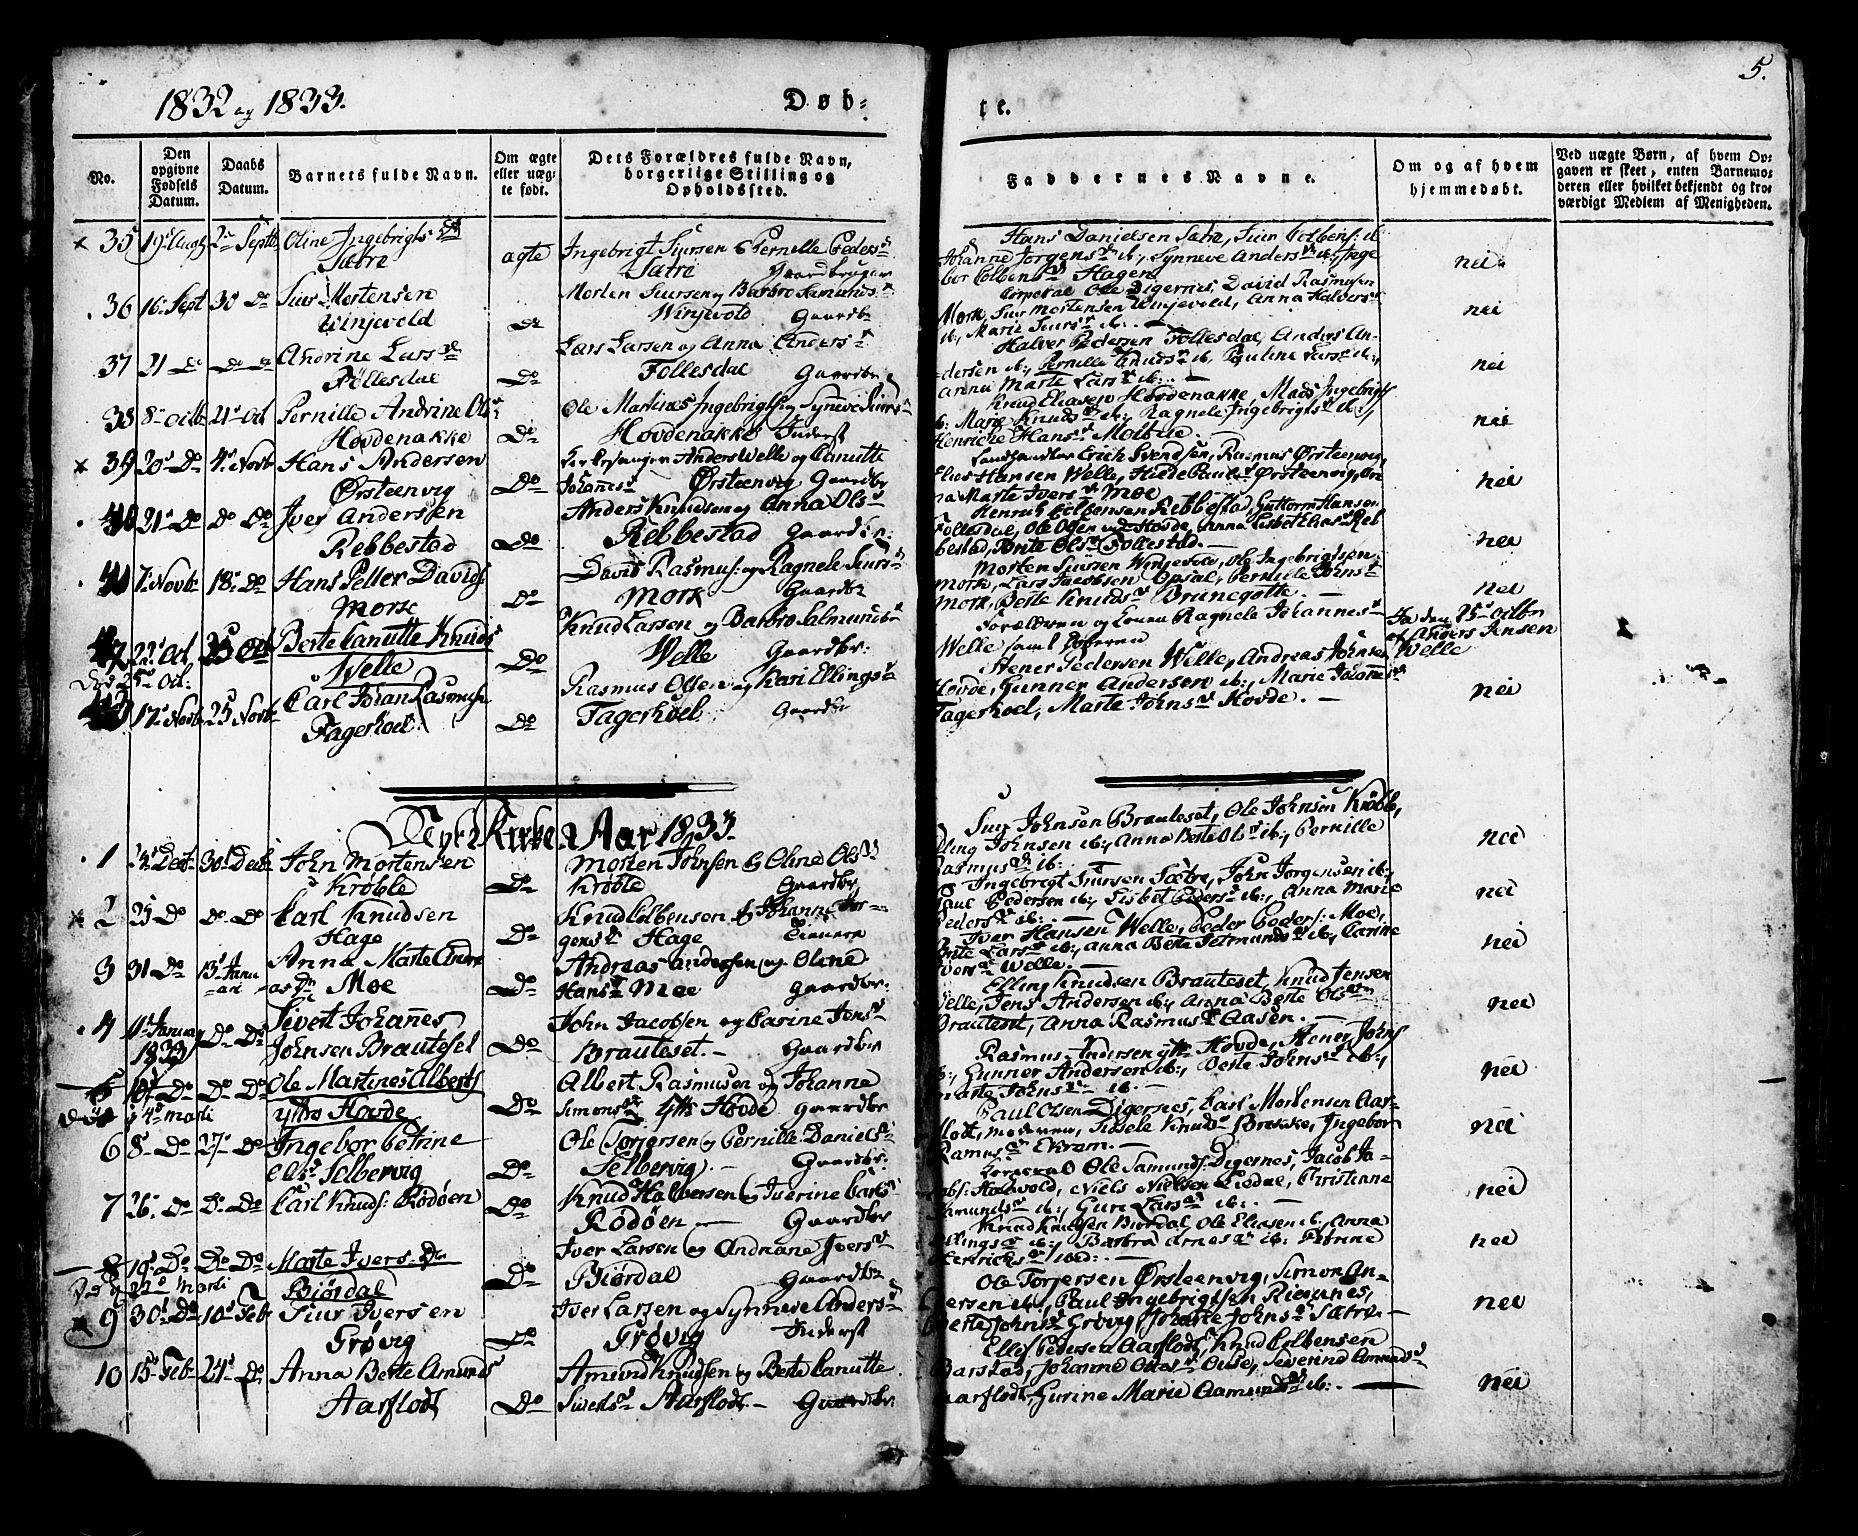 1832 og 1833.
Døb=
te.
5.
No.
Den opgivne Fødsels Datum.
Daabs Datum.
Barnets fulde Navn.
Om ægte eller uæg= te født.
Dets Forældres fulde Navn, borgerlige Stilling og Opholdssted.
Faddernes Navne.
Om og af hvem hjemmedøbt.
Ved uægte Børn, af hvem Op= gaven er skeet, enten Barnemo= deren eller hvilket bekjendt og tro= værdigt Medlem af Menigheden.
× 35 Oline Ingebrigts
Sætre
ægte
Ingebrigt Siursen & Pernille Peders
Sætre Gaardbruger
Hans Danielsen Sætre, Siur Colbens: ib
Johanne Jorgens ib:, Synneve Anders ib:, Inge
bor Colbens Hagen
nei
36 16 Sept 30 Do Siur Mortensen
Winjevold
Do
Morten Siursen og Barbro Samunds
Winjevold Gaardb
Corporal Ole Digernes, David Rasmusen
Mork, Siur Mortensen Winjevold, Anna Halvers
ib, Marie Siurs ib: —
nei
37 21 Do Do Do Andrine Lars
Follesdal
Do
Lars Larsen og Anna Anders
Follesdal Gaardbr
Halver Pedersen Follesdal, Anders An-
dersen ib:, Pernille Knuds ib, Pauline Lars ib:,
Anna Marte Lars ib: —
nei
38 8 Octb 21 Oct Pernille Andrine Ols
Hovdenakke
Do
Ole Martines Ingebrigts og Synneve Siurs
Hovdenakke Inderst
Knud Eliasen Hovdenakke, Mads Ingebrigts
ib: Marie Knuds ib:, Ragnele Ingebrigts ib:,
Henriche Hans Molvue
nei
× 39 20 Do 4 Novb Hans Andersen
Ørsteenvig
Do
Anders Welle og Canutte
Johanes Ørsteenvig Gaardbr
Erich Svendsen, Rasmus Ørsteenvig,
Elias Hansen Welle, Ørsteenvig, An
na Marte Ivers Moe
nei
40 21 Do Do Do Iver Andersen
Rebbestad
Do
Anders Knudsen og Anna Ols
Rebbestad Gaardbr:
Henrich Colbensen Rebbestad, Guttorm Hansen
Follesdal, Ole Olsen Hovde, Anna Lisbet Reb
bestad, Berte Ols Follestad. —
nei
7 Novb 18 Do Hans Petter Davids
Mork
Do
David Rasmus: og Ragnele Siurs
Mork Gaardbr
Morten Siursen Winjevold, Ole Ingebrigtsen
Mork, Lars Jacobsen Opsal, Pernille Johns
Mork, Berte Knuds Brunegotte. —
nei
22 Oct 25 Oct Berte Canutte Knuds
Welle
Død 25 Oct:
Do
Knud Larsen og Barbro Salmunds
Welle Gaardbr:
Forældren og Ragnele Johannes
Welle samt
Ja den 25 Octbr
af Anders Jensen
Welle
17 Novb 25 Novb Carl Johan Rasmus
Fagerhoel
Do
Rasmus Olsen og Kari Ellings
Fagerhoel. Gaardbr
Stener Pedersen Welle, Andreas Johnsen
Hovde, Gunner Andersen ib:, Marie Johannes
Fagerhoel, Marte Johns Hovde. —
nei
Nytt Kirke Aar 1833.
1 30 Decb John Mortensen
Krøble
Do
Morten Johnsen & Oline Ols
Krøble Gaardbr
Siur Johnsen Brauteset, Ole Johnsen Krøble,
Elling Johnsen ib:, Anna Berte Ols ib:, Pernille
Rasmus ib: —
nei
× 2 25 Do Do Do Karl Knudsen
Hage
Do
Knud Colbensen & Johanne Jør-
gens Hage Tienere
Ingebrigt Siursen Sætre, John Jorgensen ib:,
Paul Pedersen ib:, Lisbet Peders ib:, Anna Marie
Peders ib: —
nei
3 31 Do 13 Janu
ari Anna Marte Andre
as Dr Moe
Do
Andreas Andersen og Oline
Hans Moe Gaardbr:
Iver Hansen Welle, Peder Peders: Moe,
Berte Lars ib:, Anna Berte Setmunds ib:, Carine
Ivers Welle. —
nei
4 Januar
1833 Do Do Sivert Johanes
Johnsen Brauteset
Do
John Jacobsen og Carine Jens
Brauteset. — Gaardbr
Elling Knudsen Brauteset, Knud Jensen
Welle, Jens Andersen ib:, Anna Berte Ols
Brauteset, Anna Rasmus Aasen. —
nei
5 10 Do Do Do Ole Martines Alberts
yttre Hovde
Død 4 Marti
Do
Albert Rasmusen og Johanne
Simons Ytt: Hovde Gaardbr
Rasmus Andersen ytt: Hovde, Stener Johns
ib:, Gunner Andersen ib:, Berte Johns ib:,
Marte Johns ib: —
nei
6 8 Do 27 Do Ingebor Petrine
Ols Selbervig
Do
Ole Torgersen og Pernille Daniels
Selbervig. — Gaardbr:
Paul Olsen Digernes, Carl Mortensen Aar-
flott, Moderen, Sidsele Knuds Brekke, Ingebor
Ramus Ekrem. —
nei
7 26 Do Do Do Carl Knuds: Rødøen
Do
Knud Halversen & Iverine Carls
Rødøen — Gaardbr
Corporal Ole Samunds: Digernes, Jacob Ja-
cobs: Holevold, Niels Nielsen Lisdal, Christiane
Samunds ib:, Guri Lars ib:
nei
8 19 Do Do Do Marte Ivers Dr
Biørdal
Død 22 Marti
Do
Iver Larsen og Andriane Ivers
Biørdal Gaardbr
Knud Knudsen Biørdal, Ole Eliasen ib:, Anna
Ellings ib:, Barbra Arnes ib: Petrine
Henrichs ibid: —
nei
9 30 Do 10 Feb Siur Iversen
Grøvig
Do
Iver Larsen og Synneve Anders
Grøvig Inderst
Ole Torgersen Ørsteenvig, Simon An-
dersen ib:, Paul Ingebrigtsen Riisnes,
Berte Johns Grøvig, Marte Johns Sætre —
nei
10 15 Feb 24 Do Anna Berte Amunds
Aarflodt
Do
Amund Knudsen og Berte Canutte
Siverts Aarflodt — Gaardbr:
Elles Pedersen Aarflodt, Knud Colbensen
Barstad, Johanne Ouse, Severine Amunds
Aarflodt, Gurine Marie Aamunds ib: —
nei